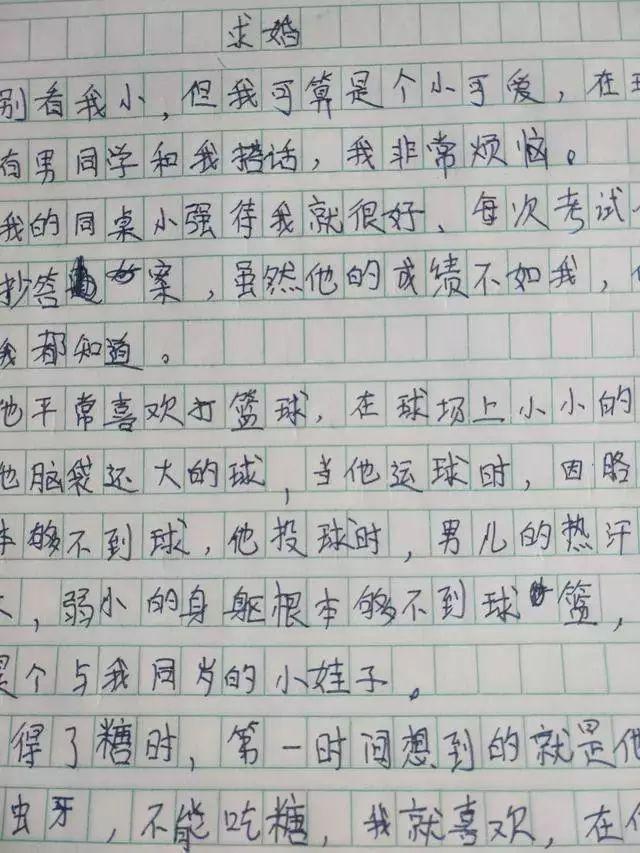 求婚
别看我小，但我可算是个小可爱，在
有男同学和我搭话，我非常烦恼。
我的同桌小强待我就很好、每次考试
抄答案，虽然他的成绩不如我，
我都知道。
他平常喜欢打篮球，在球场上小小的
他脑袋还大的球，当他运球时，因胳
本够不到球，他投球时，男儿的热汗
，弱小的身躯根本够不到球篮，
是个与我同岁的小娃子。
得了糖时，第一时间想到的就是他
虫牙，不能吃糖，我就喜欢，在